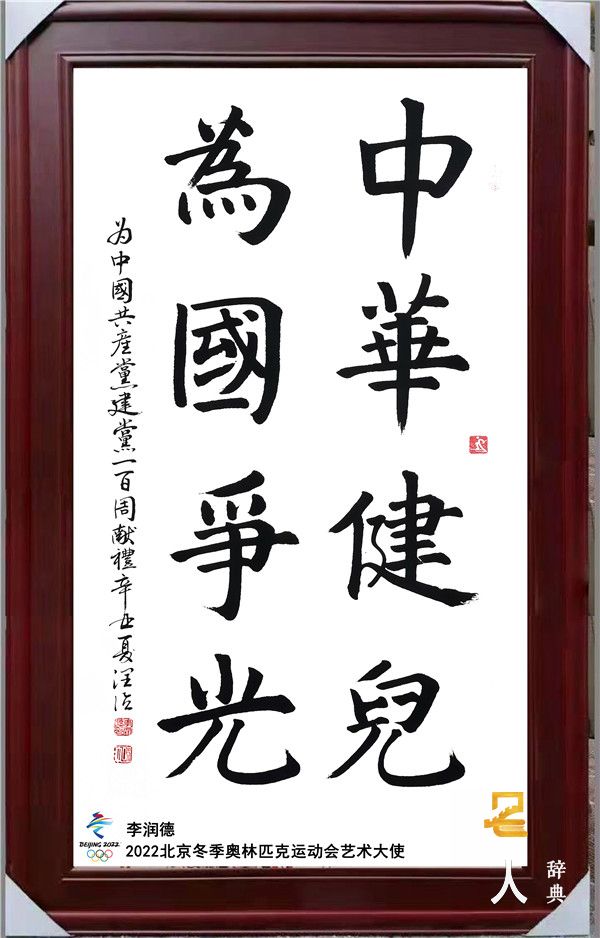 中華健兒
為國爭光
为中國共産黨建黨一百周献禮辛丑夏润德
BEIJING 2022
李润德
2022北京冬季奥林匹克运动会艺术大使
名人
辞典